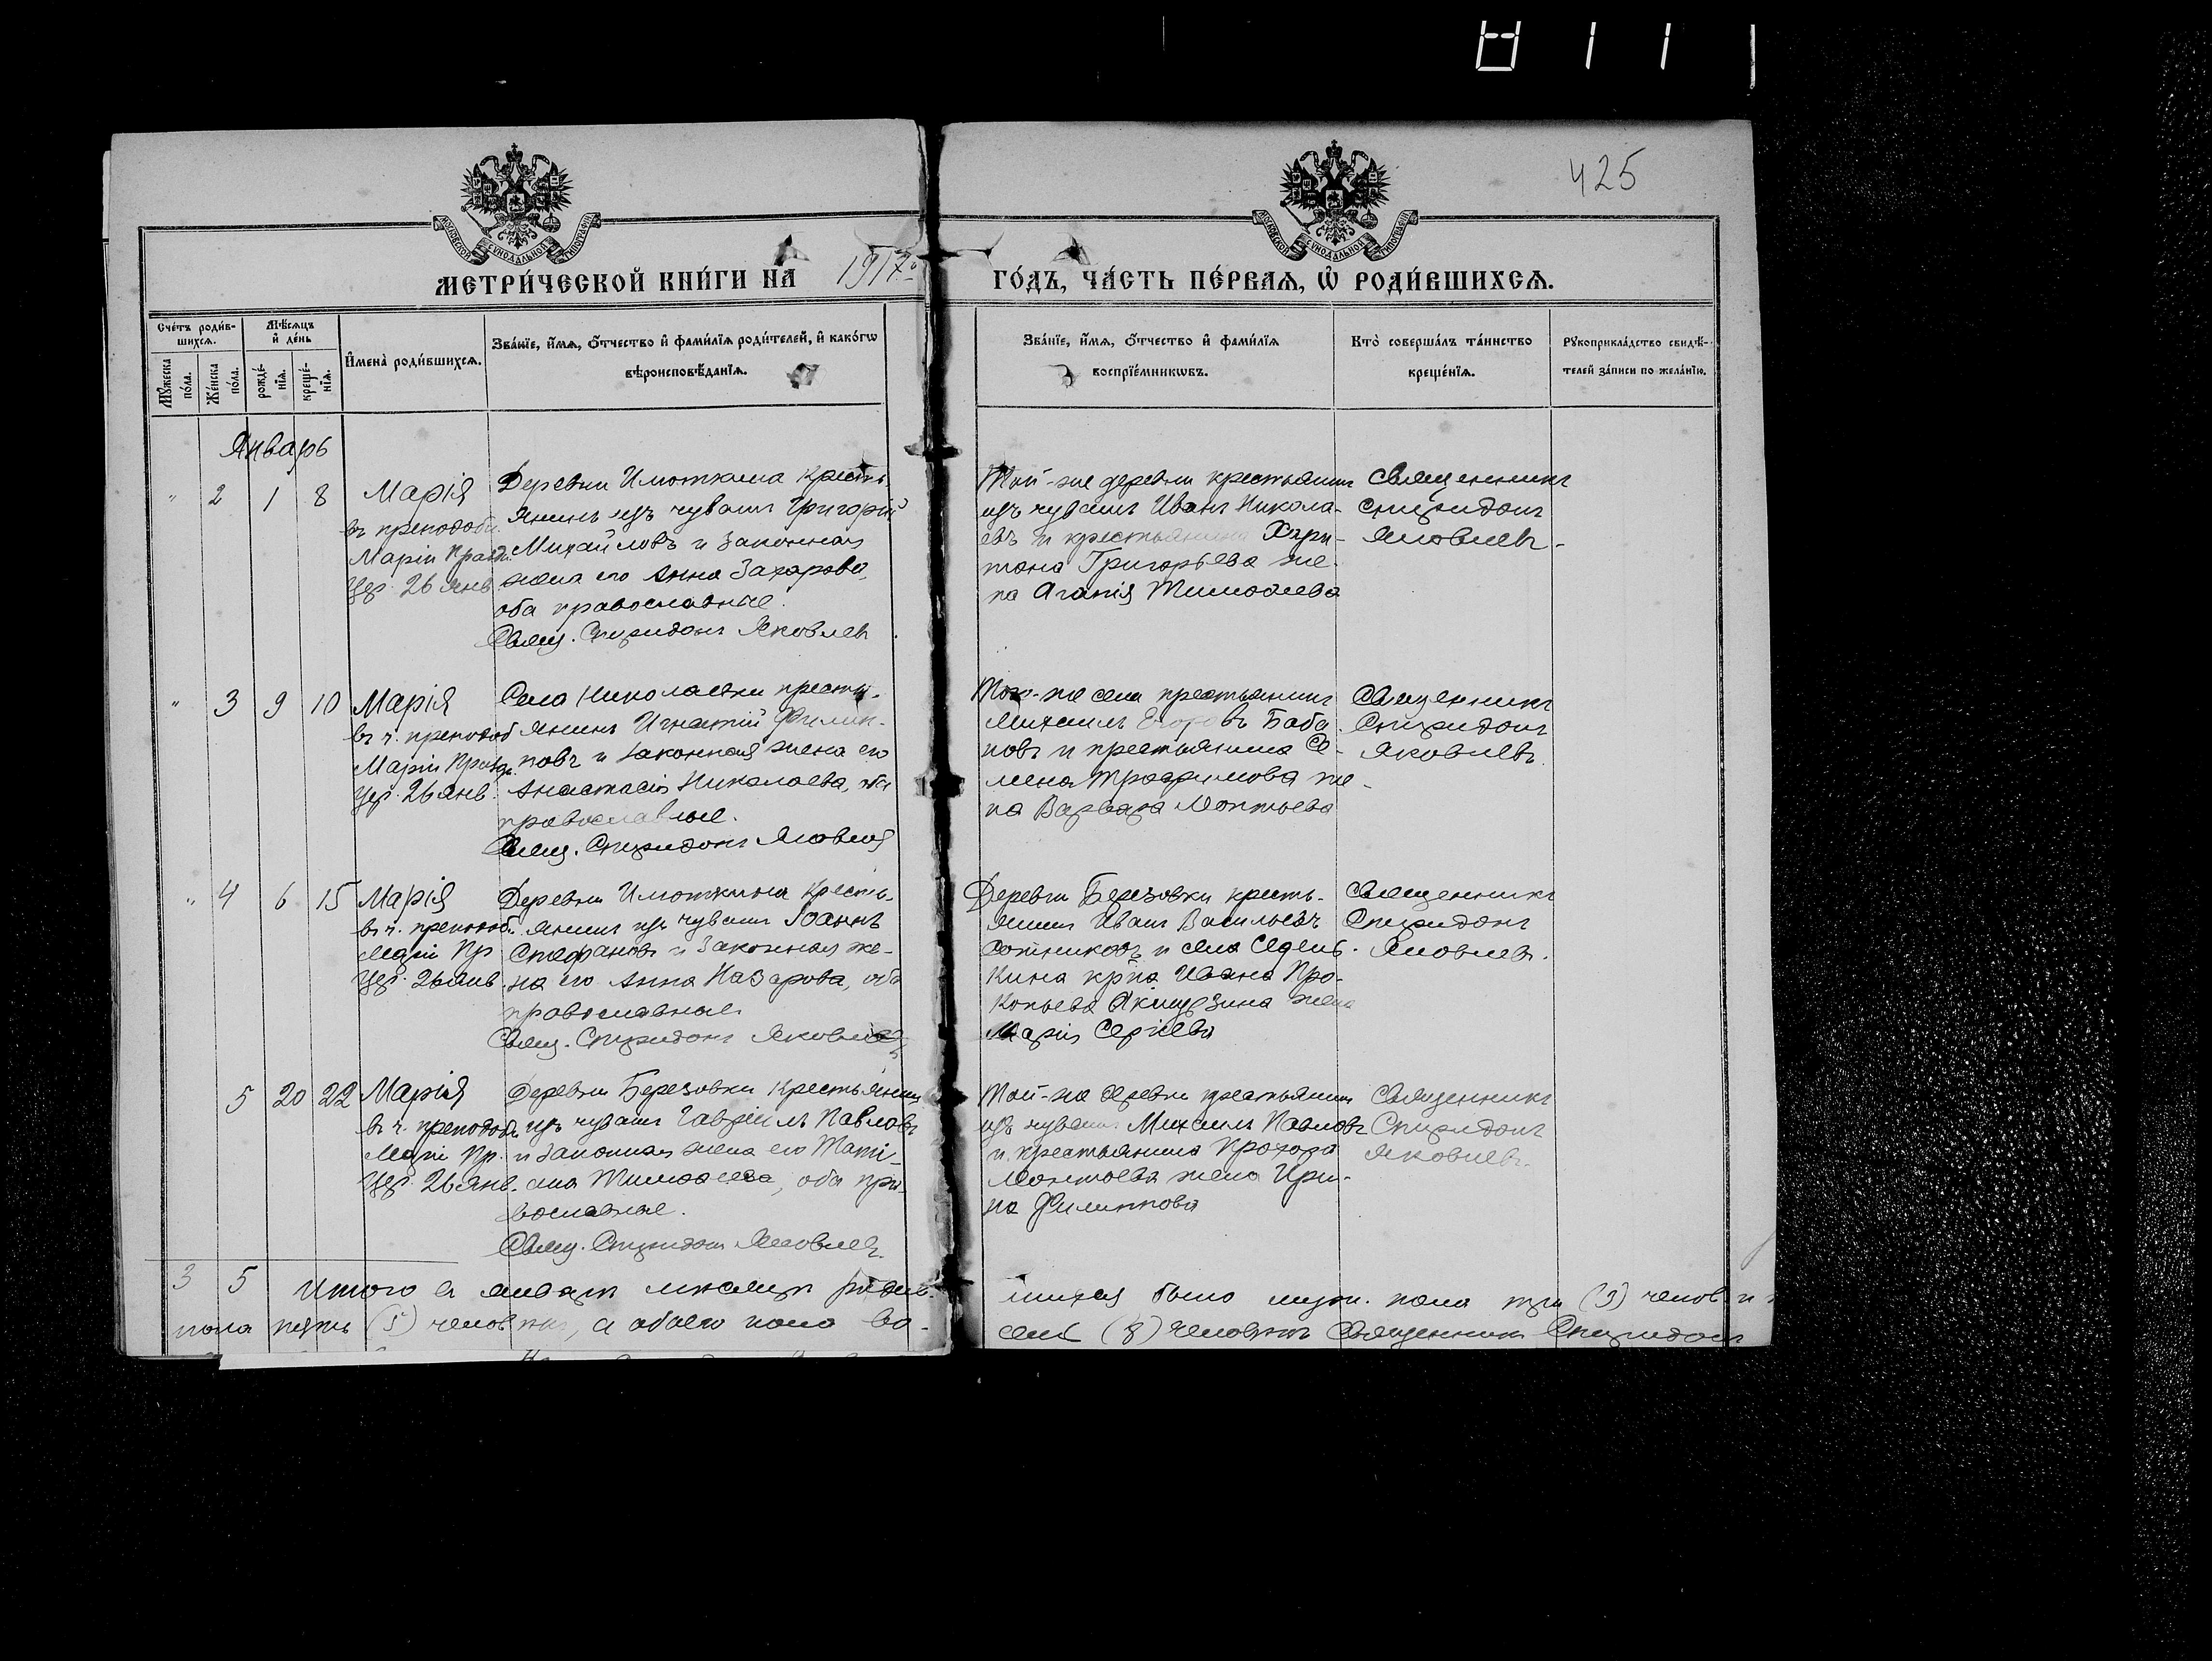 425
МЕТРИ́ЧЕСКОЙ КНИ́ГИ НА 1917 ГО́ДЪ, ЧА́СТЬ ПЕ́РВАЯ, Ѽ РОДИ́ВШИХСЯ.
Сче́тъ роди́в-
шихся.
Мѣ́сяцъ
и҆ де́нь
Мꙋ́жеска
по́ла.
Же́нска
по́ла.
рожде́-
нїѧ.
креще́-
нїѧ.
И҆мена̀ роди́вшихся.
Зва́нїе, и҆́мѧ, ѻ҆́тчество и҆ фами́лїѧ роди́телей, и҆ како́гѡ
вѣроисповѣ́данїѧ.
Зва́нїе, и҆́мѧ, ѻ҆́тчество и҆ фами́лїѧ
воспрїе́мникѡвъ.
Кто̀ соверша́лъ та́инство
креще́нїѧ.
Рꙋкоприкла́дство свидѣ́-
телей за́писи по жела́нїю.
Январь
" 2 1 8 Марія
въ преподоб.
Маріи Правд.
Цер. 26 янв
Деревни Имоткина кресть-
янинъ изъ чувашъ Григорій
Михайловъ и законная
жена его Анна Захарова,
оба православные.
Свящ. Спиридонъ Яковлевъ
Той-же деревни крестьянинъ
изъ чувашъ Иванъ Никола-
евъ и крестьянина Хари-
тона Григорьева же-
на Агапія Тимоѳеева
Священникъ
Спиридонъ
Яковлевъ.
" 3 9 10 Марія
въ ч. преподоб
Маріи Правд.
Цер. 26 янв.
Села Николаевки кресть-
янинъ Игнатій Филип-
повъ и законная жена его
Анастасія Николаева, оба
православные.
Свящ. Спиридонъ Яковлев
Того-же села крестьянинъ
Михаилъ Егоровъ Баба-
новъ и крестьянина Се-
мена Трофимова же-
на Варвара Леонтьева
Священникъ
Спиридонъ
Яковлевъ.
" 4 6 15 Марія
въ ч. преподоб.
Маріи Пр
Цер. 26 янв.
Деревни Имоткина кресть-
янинъ изъ чувашъ Іоаннъ
Стефановъ и законная же-
на его Анна Назарова, оба
православные
Свящ. Спиридонъ Яковлевъ
Деревни Березовки кресть-
янинъ Иванъ Васильевъ
Сотниковъ и села
кина кр-на Ивана Про-
копьева жена
Марія Сергіева
Священникъ
Спиридонъ
Яковлевъ.
5 20 22 Марія
въ ч. преподоб.
Маріи Пр.
Цер. 26 янв.
Деревни Березовки крестьянинъ
изъ чувашъ Гавріилъ Павловъ
и законная жена его Тати-
ана Тимоѳеева, оба пра-
вославные.
Свящ. Спиридонъ Яковлевъ.
Той-же деревни крестьянинъ
изъ чувашъ Михаилъ Павловъ
и крестьянина Прохора
Леонтьева жена Ири-
на Филиппова
Священникъ
Спиридонъ
Яковлевъ.
3 5 Итого въ январѣ мѣсяцѣ родив- шихся было муж. пола три (3) челов. и
пола пять (5) человѣкъ, а обоего пола во- семь (8) человѣкъ Священникъ Спиридонъ